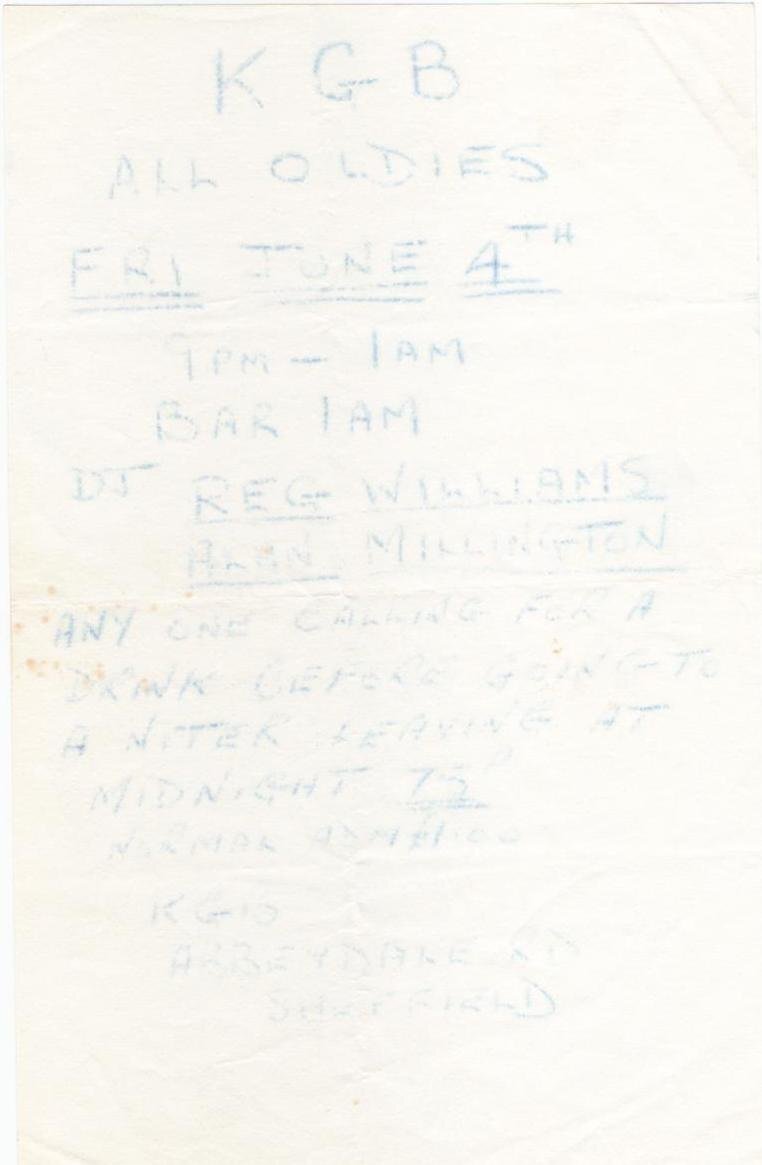 KGB
ALL OLDIES
FRI JUNE 4TH
9PM - 1AM
BAR 1AM
DJ REG WILLIAMS
ALAN MILLINGTON
ANY ONE CALLING FOR A
DRINK BEFORE GOING TO
A NITER LEAVING AT
MIDNIGHT 75P
NORMAL ADM £1.00
KGB
ABBEYDALE RD
SHEFFIELD